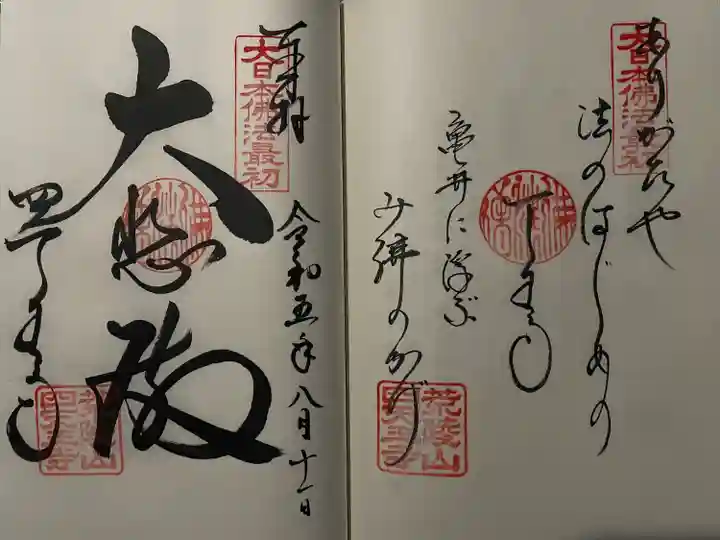 大日本佛法最初
ありがたや
法のはじめの
天王寺
亀井に浮ぶ
み佛のかげ
荒陵山
四天王寺
大日本佛法最初
奉拝
令和五年八月十一日
大悲殿
四天王寺
荒陵山
四天王寺